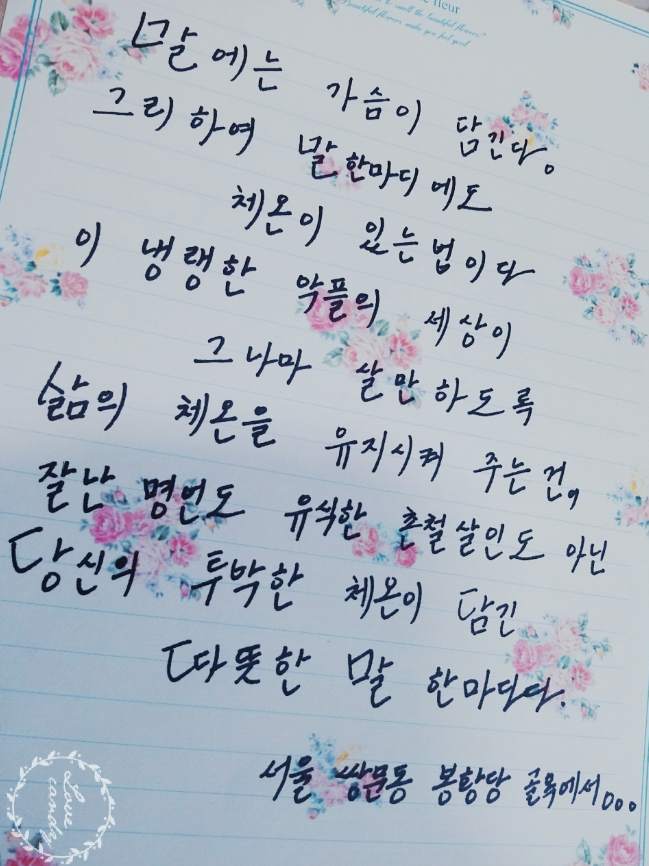 fleur
to smell the beautiful flowers."
Beautiful flowers make you feel good
말에는 가슴이 담긴다。
그리하여 말한마디에도
체온이 있는법이다
이 냉랭한 악플의 세상이
그나마 살만하도록
삶의 체온을 유지시켜 주는건,
잘난 명언도 유식한 촌철살인도 아닌
당신의 투박한 체온이 담긴
따뜻한 말 한마디다.
서울 쌍문동 봉황당 골목에서。。。
Love
candy